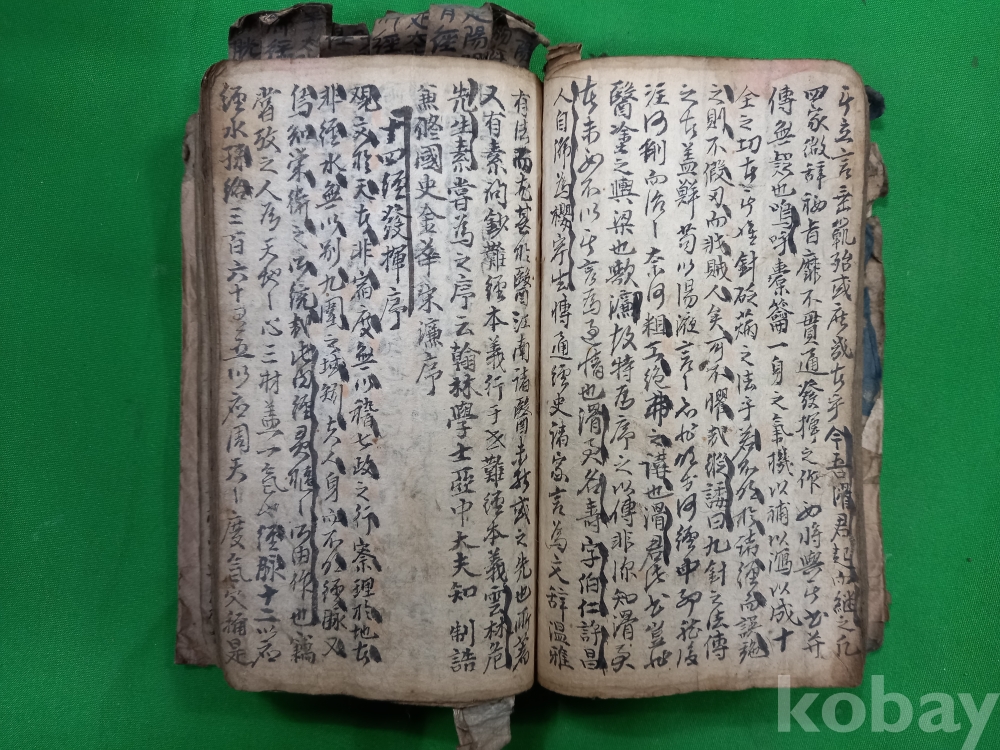 其立言垂範殆或庶幾者乎今吾滑君起而繼之凡
四家微辭秘旨靡不貫通發揮之作如將與其書并
傳無疑也嗚呼橐籥一身之氣機以補以瀉以成十
全之功者其唯針砭焫之法乎若不明於諸經而誤施
之則不假刃而戕賊人矣可不懼哉縱諉曰九針之法傳
之者蓋鮮苟以湯液言之亦必明於何經中邪然後
注何劑而治之奈何粗工絶弗之講也滑君此書豈非
醫塗之輿梁也歟濂故特為序之以傳非深知滑君
者未必不以其言為過情也滑君名壽字伯仁許昌
人自號為攖寧生博通經史諸家言為文辭溫雅
有法而尤甚於醫江南諸醫未能或之先也所著
又有素問鈔難經本義行于世難經本義雲林危
先生素嘗為之序云翰林學士亞中大夫知 制誥
兼脩國史金華宋濂序
十四經發揮序
觀文於天者非宿度無以稽七政之行察理於地者
非經水無以別九圍之域矧夫人身而不明經脉又
焉知榮衛之所統哉此內經靈樞之所由作也竊
嘗攷之人為天地之心三材蓋一氣也經脉十二以應
經水孫絡三百六十有五以應周天之度氣穴稱是
kobay